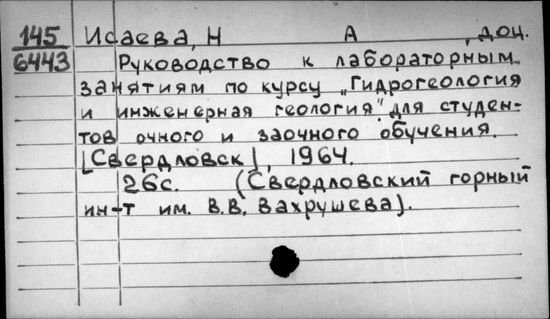 145 Исаева, Н А , доц.
6443 Руководство к лабораторным
занятиям по курсу „Гидрогеология
и инженерная геология" для студен-
тов очного и заочного обучения.
[Свердловск], 1964.
26с. (Свердловский горный
ин-т им. В.В. Вахрушева).